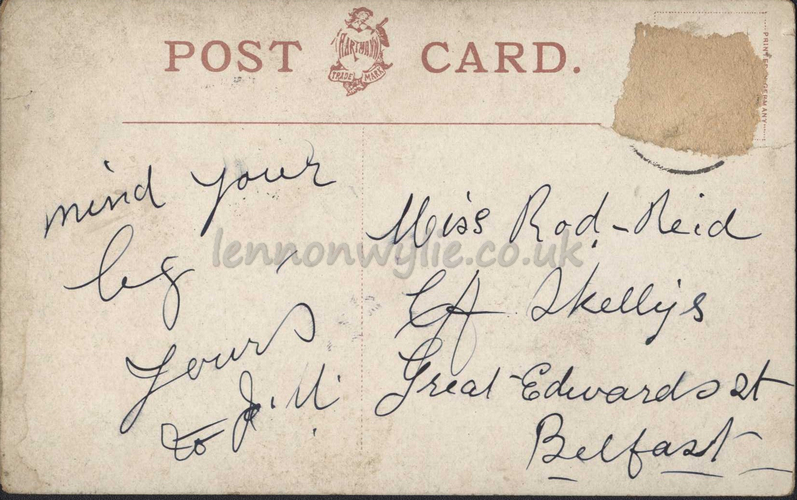 POST CARD.
HARTMANN
TRADE MARK
PRINTED IN GERMANY
mind your
leg
yours
to J. M.
Miss Rod-Reid
C/o Skellys
Great Edwards st
Belfast
lennonwylie.co.uk